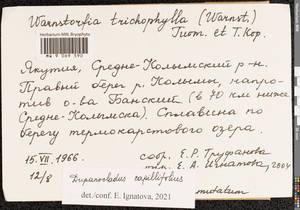 Warnstorfia trichophylla (Warnst.)
Tuom. et T. Kop.
Herbarium MW, Bryophyta
MW 9 069 590
Якутия, Средне-Колымский р-н.
Правый берег р. Колымы, напро-
тив о-ва Банский (в 70 км ниже
Средне-Колымска). Сплавина по
берегу термокарстового озера.
15. VII. 1966.
собр. Е.Р. Труфанова
12/8
опр. Е.А. Игнатова, 2004
Drepanocladus capillifolius
det./conf. E. Ignatova, 2021